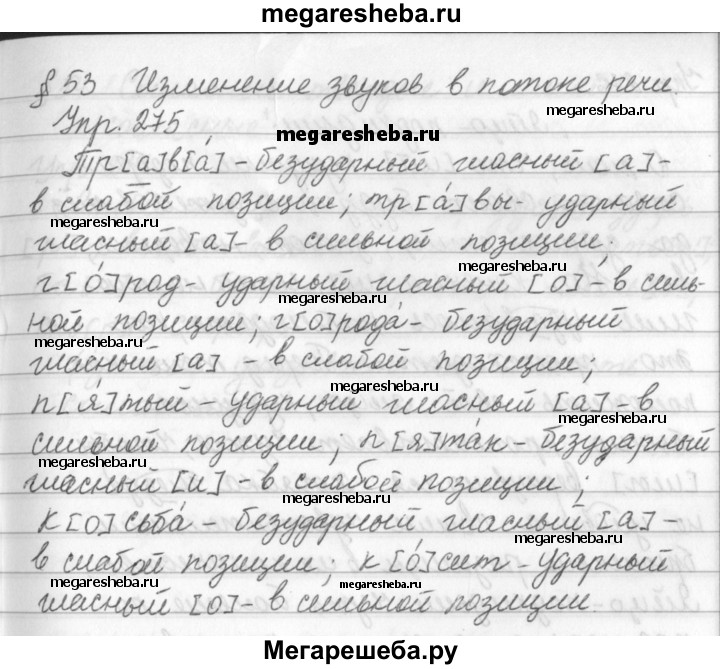 megaresheba.ru
§ 53 Изменение звуков в потоке речи.
megaresheba.ru
Упр. 275
megaresheba.ru
Тр[а]в[а́] - безударный гласный [а] -
в слабой позиции; тр[а́]вы - ударный
megaresheba.ru
гласный [а] - в сильной позиции;
megaresheba.ru
г[о́]род - ударный гласный [о] - в силь-
megaresheba.ru
ной позиции; г[о]рода́ - безударный
megaresheba.ru
гласный [а] - в слабой позиции;
megaresheba.ru
п[я́]тый - ударный гласный [а] - в
сильной позиции; п[я]та́к - безударный
megaresheba.ru
гласный [и] - в слабой позиции;
megaresheba.ru
к[о]сьба́ - безударный гласный [а] -
megaresheba.ru
в слабой позиции; к[о́]сит - ударный
megaresheba.ru
megaresheba.ru
гласный [о] - в сильной позиции.
megaresheba.ru
Мегарешеба.ру